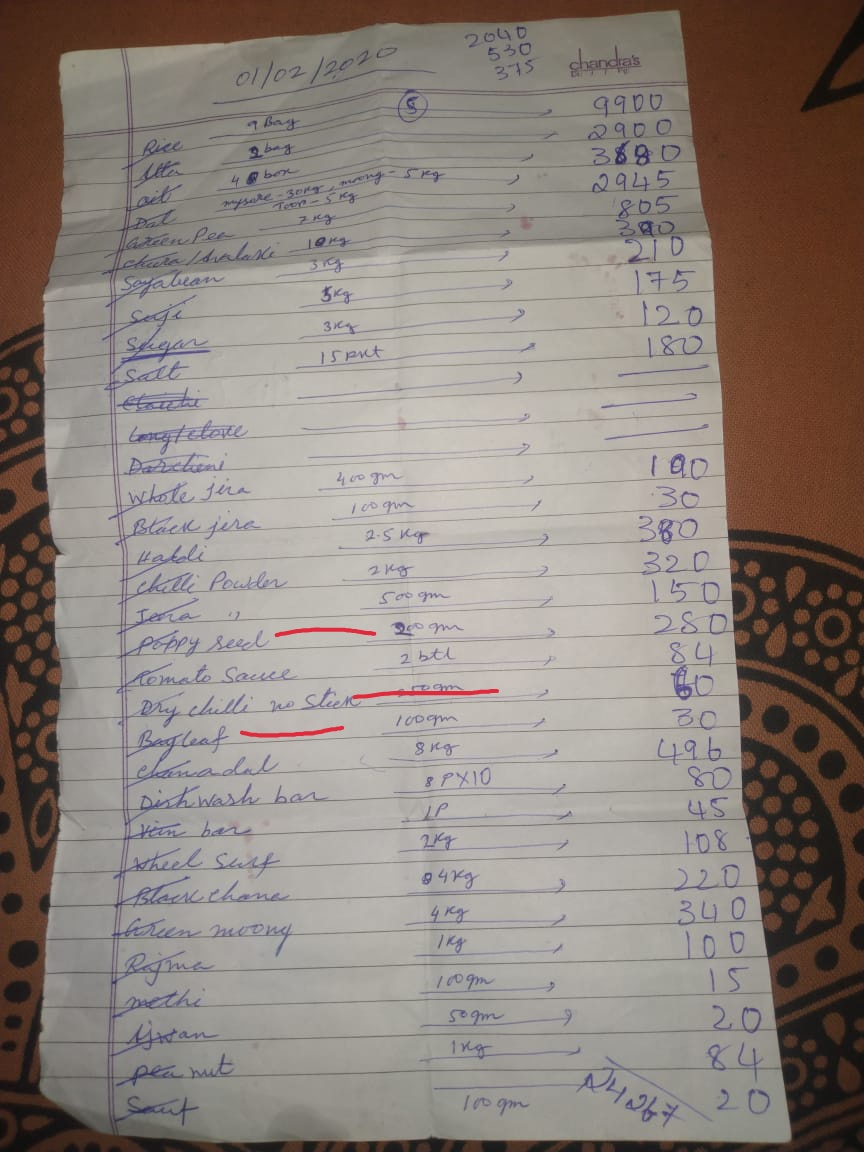 01/02/2020
2040
530
375
chandra's
5
Rice 9 Bag 9900
Atta 2 bag 2900
oil 4 box 3880
Dal mysore-30Kg, moong-5Kg Toor-5Kg 2945
Green Pea 7Kg 805
Chura/Avalakki 10Kg 390
Soyabean 3Kg 210
Suji 5Kg 175
Sugar 3Kg 120
Salt 15 pkt 180
Elaichi
Long/clove
Darcheni
Whole jira 400gm 190
Black jira 100gm 30
Haldi 2.5Kg 380
Chilli Powder 2Kg 320
Jeera " 500gm 150
Poppy seed 200gm 280
Tomato Sauce 2 btl 84
Dry chilli no Stick 60
Bayleaf 100gm 30
Chanadal 8Kg 496
Dish wash bar 8PX10 80
Vim bar 1P 45
Wheel Surf 2Kg 108
Black chana 4Kg 220
Green moong 4Kg 340
Rajma 1Kg 100
methi 100gm 15
Ajwan 50gm 20
pea nut 1Kg 84
Sauf 100gm 20
24267